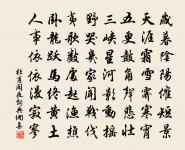 歲暮陰陽催短景
天涯霜雪霽寒宵
五更鼓角聲悲壯
三峽星河影動搖
野哭幾家聞戰伐
夷歌數處起漁樵
臥龍躍馬終黃土
人事依依漫寂寥
杜甫閣夜詞典網集